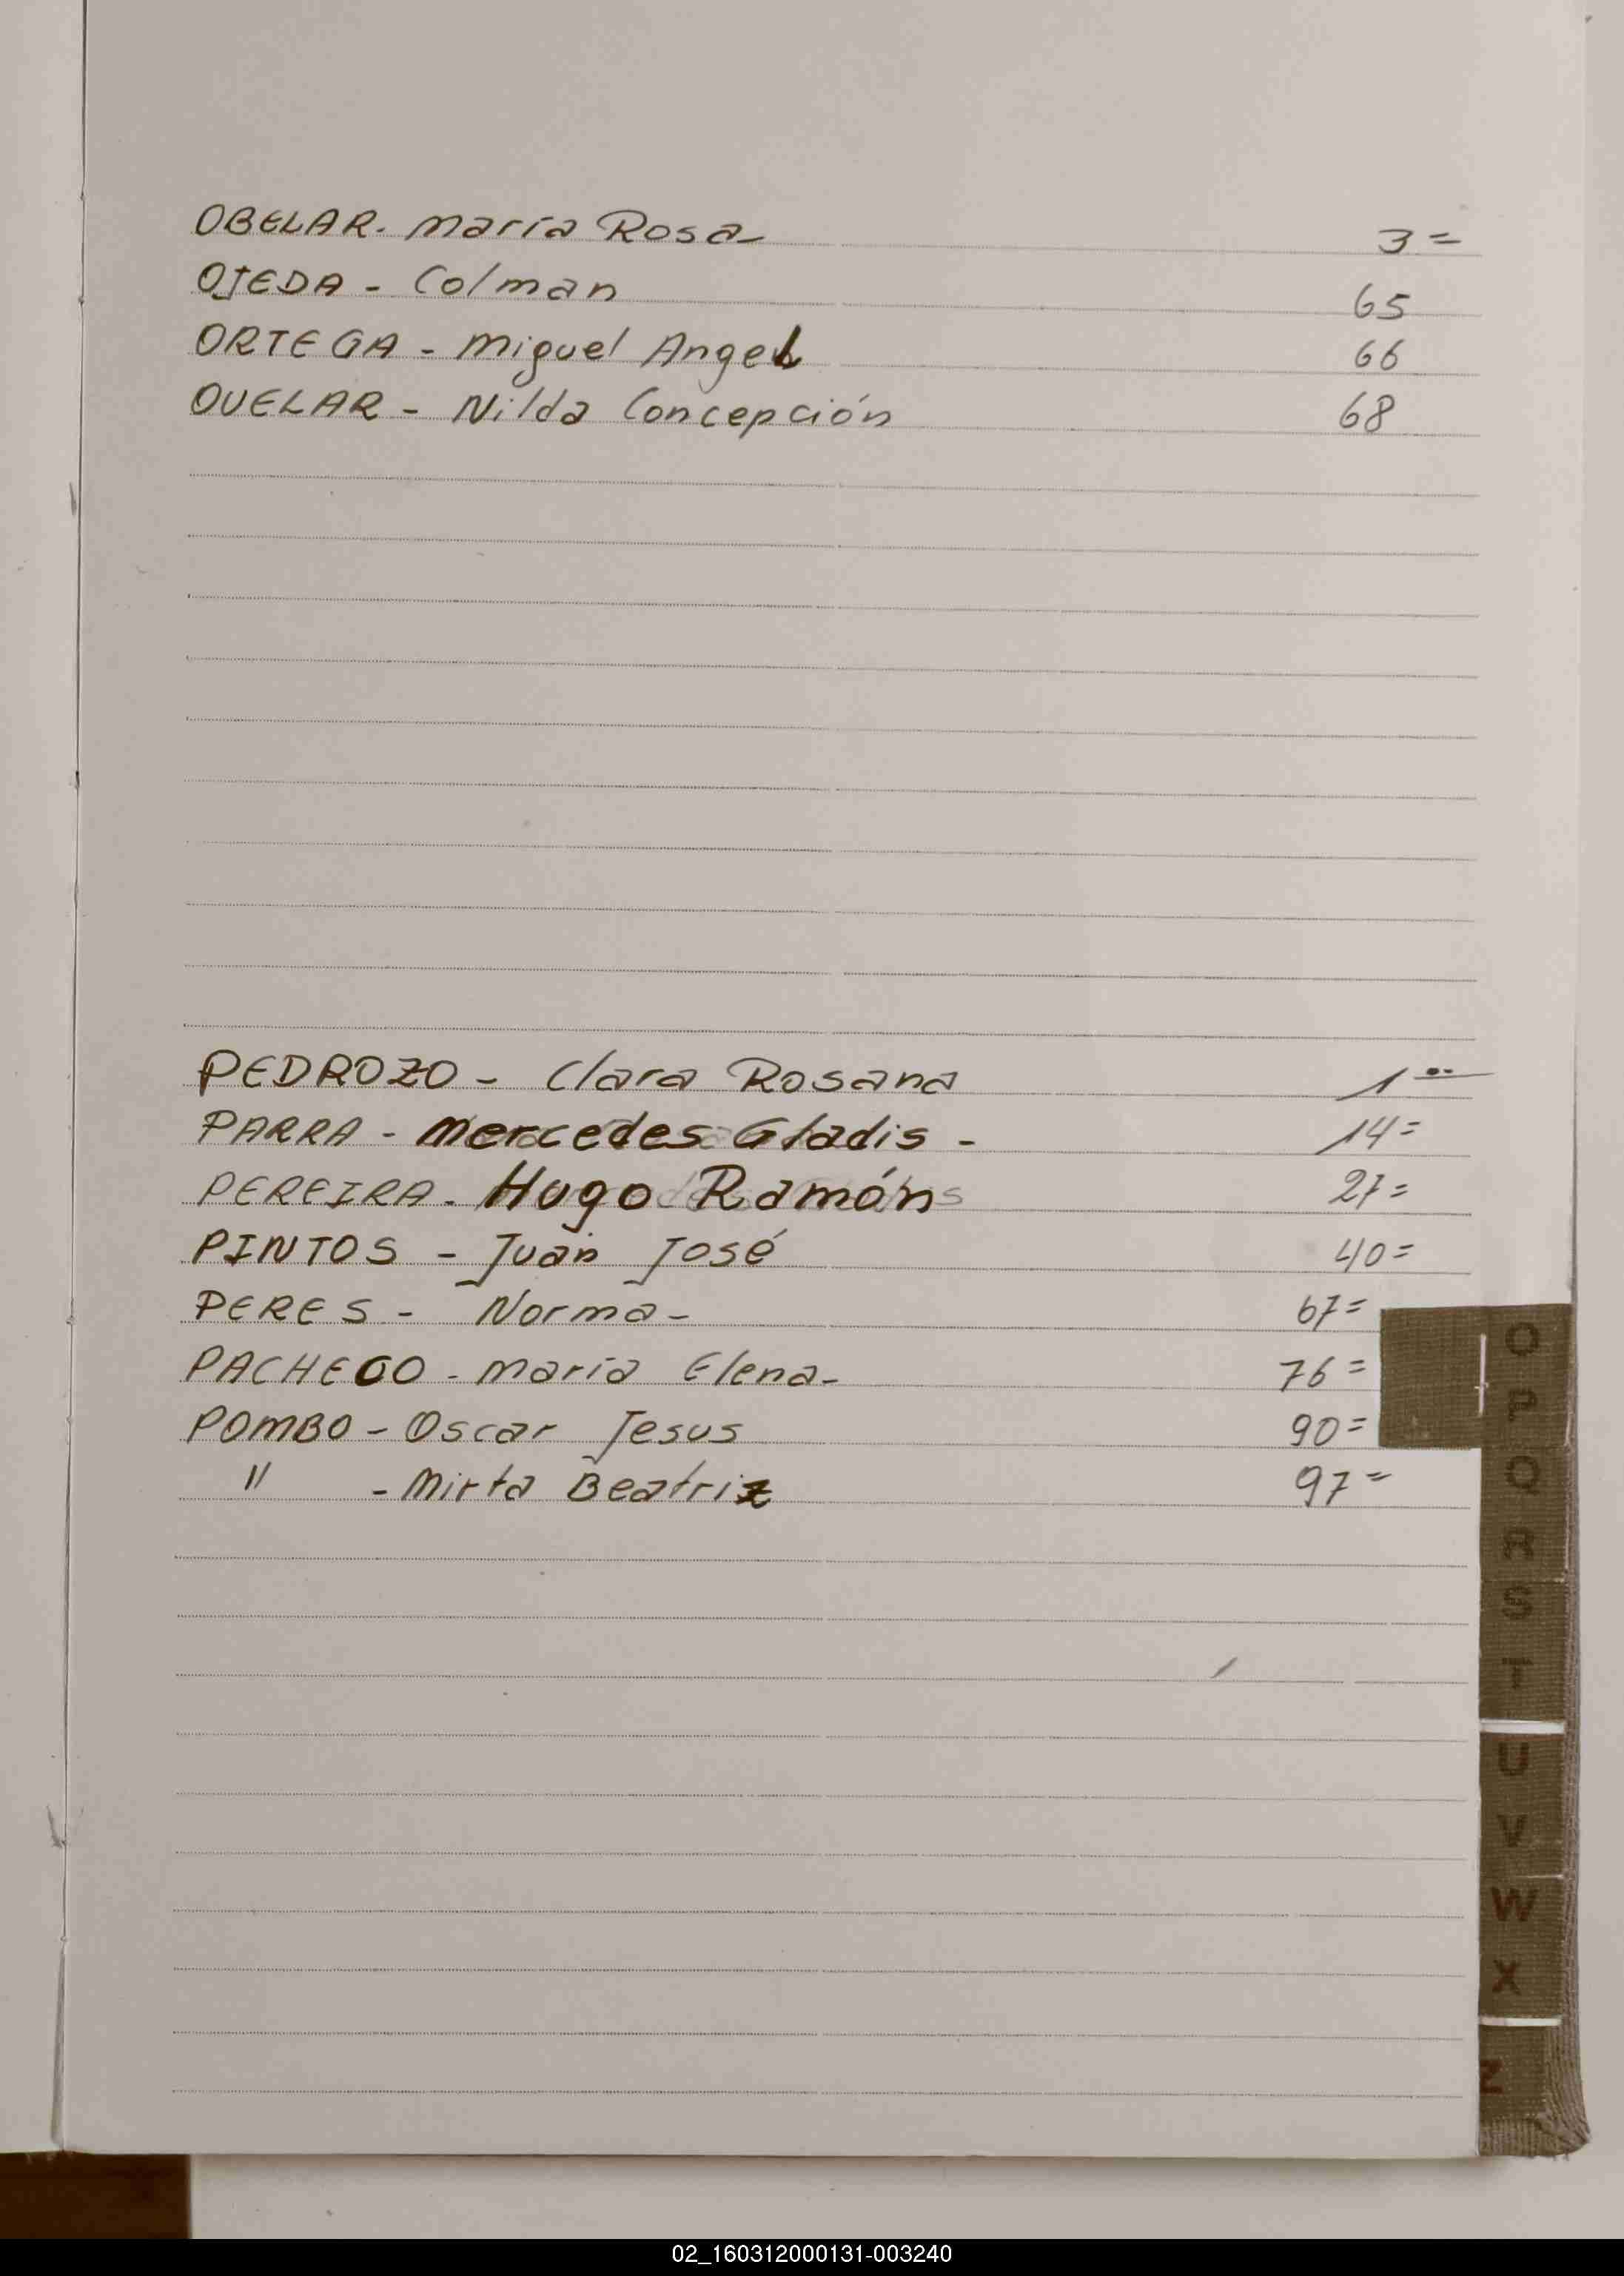 OBELAR. María Rosa- 3=
OJEDA - Colman 65
ORTEGA - Miguel Angel 66
OVELAR - Nilda Concepción 68
PEDROZO - Clara Rosana 1=
PARRA - Mercedes Gladis - 14=
PEREIRA. Hugo Ramón 27=
PINTOS - Juan José 40=
PERES - Norma - 67=
PACHECO - María Elena- 76=
POMBO - Oscar Jesus 90=
" - Mirta Beatriz 97=
O
P
Q
R
S
T
U
V
W
X
Z
02_160312000131-003240